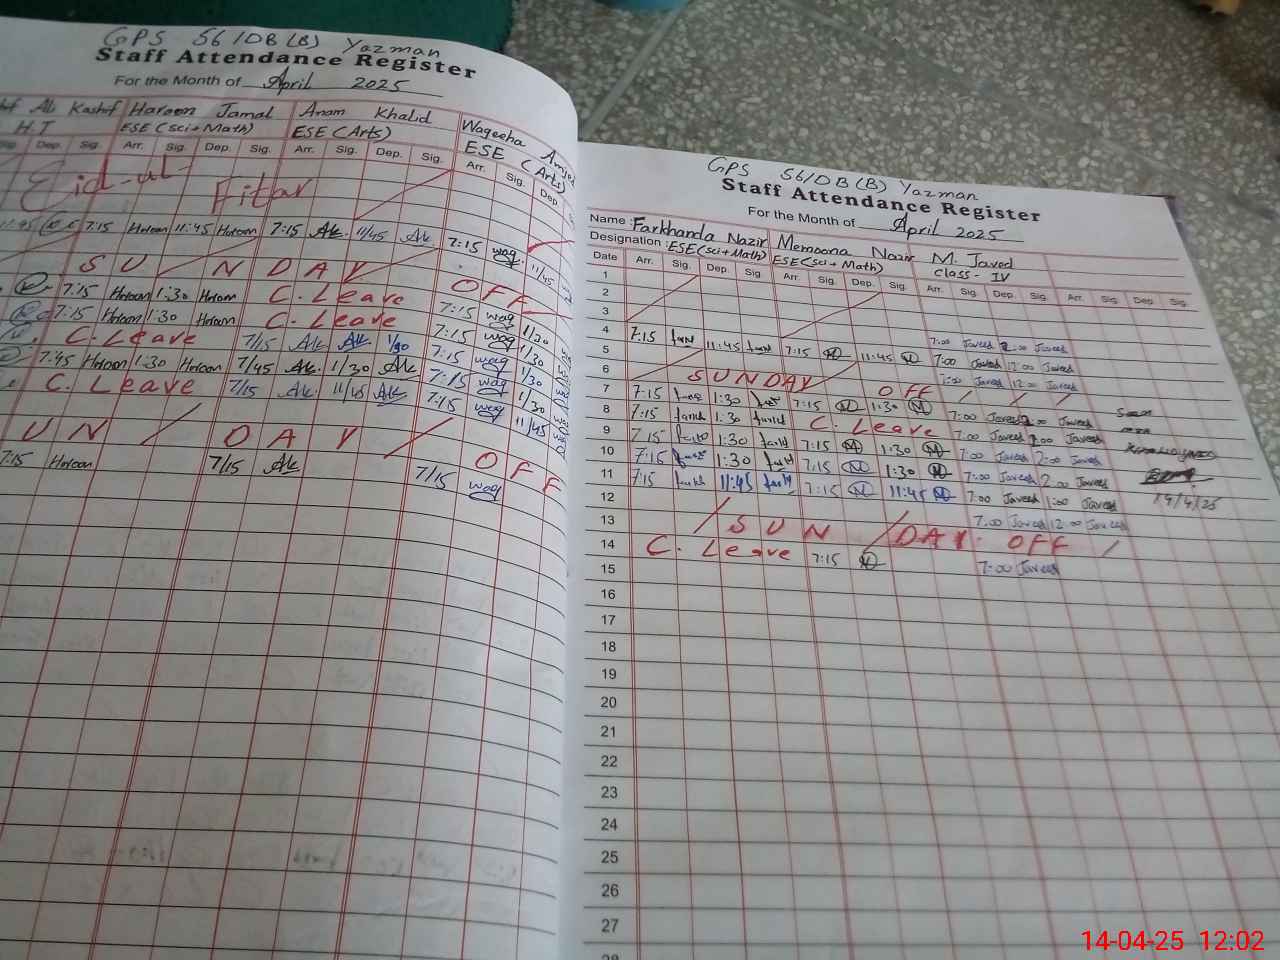 GPS 56/DB(B) Yazman
Staff Attendance Register
For the Month of April 2025
Ali Kashif Haroon Jamal Anam Khalid Waqeeha
H.T ESE (sci+Math) ESE (Arts) ESE (Arts)
Dep. Sig. Arr. Sig. Dep. Sig. Arr. Sig. Dep. Sig. Arr. Sig. Dep.
Eid-ul-Fitar
11:45 7:15 Haroon 11:45 Haroon 7:15 Ak 11/45 Ak 7:15 waq 11/45
SUNDAY OFF
7:15 Haroon 1:30 Haroon C. Leave 7:15 waq 1/30
7:15 Haroon 1:30 Haroon C. Leave 7:15 waq 1/30
C. Leave 7/15 Ak Ak 1/30 7:15 waq 1/30
7:45 Haroon 1:30 Haroon 7/45 Ak 1/30 Ak 7:15 waq 1/30
C. Leave 7/15 Ak 11/45 Ak 7:15 waq 11/45
UN / DAY / OFF
7:15 Haroon 7/15 Ak 7/15 waq
GPS 56/DB(B) Yazman
Staff Attendance Register
For the Month of April 2025
Name: Farkhanda Nazir Memoona Nazir M. Javed
Designation: ESE(sci+Math) ESE(sci+Math) class-IV
Date Arr. Sig. Dep. Sig. Arr. Sig. Dep. Sig. Arr. Sig. Dep. Sig. Arr. Sig. Dep. Sig.
1
2
3
4 7:15 11:45 7:15 M 11:45 M 7:00 Javed 2:00 Javed
5 7:00 Javed 12:00 Javed
6 SUNDAY OFF 7:00 Javed 12:00 Javed
7 7:15 1:30 7:15 M 1:30 M / / /
8 7:15 1:30 C. Leave 7:00 Javed 2:00 Javed
9 7:15 1:30 7:15 M 1:30 M 7:00 Javed 2:00 Javed
10 7:15 1:30 7:15 M 1:30 M 7:00 Javed 2:00 Javed
11 7:15 11:45 7:15 M 11:45 M 7:00 Javed 2:00 Javed
12 7:00 Javed 1:00 Javed 14/4/25
13 / SUN / DAY. OFF / 7:00 Javed 12:00 Javed
14 C. Leave 7:15 M
15 7:00 Javed
16
17
18
19
20
21
22
23
24
25
26
27
28
14-04-25 12:02